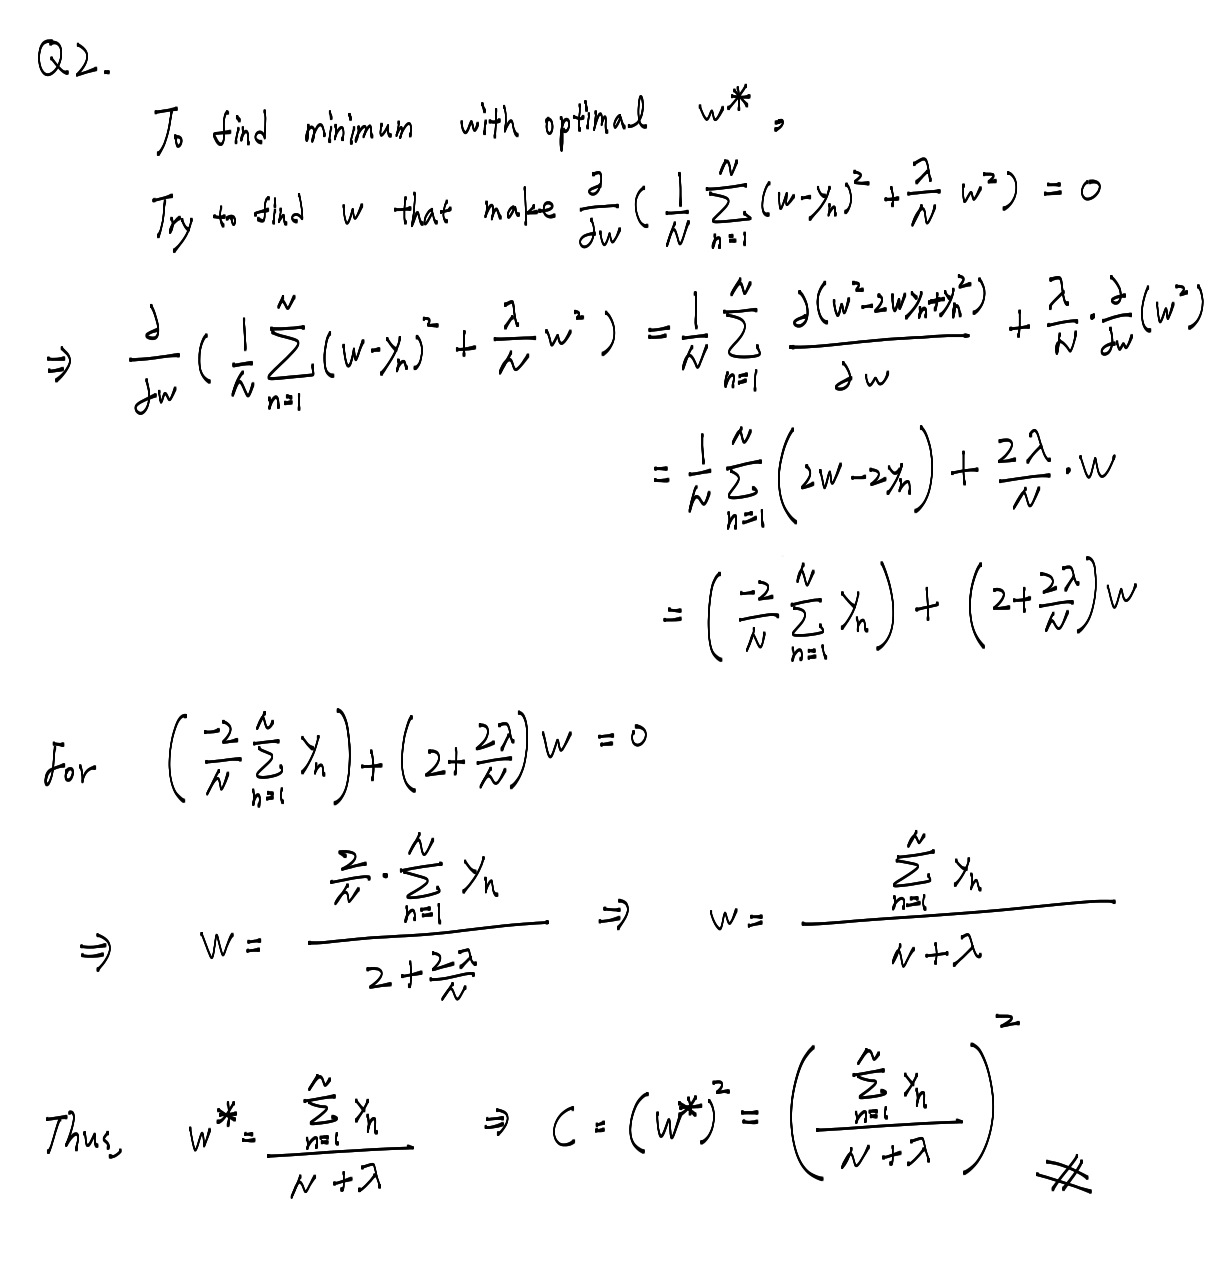 Q2.
To find minimum with optimal w*,
Try to find w that make ∂/∂w ( 1/N ∑_{n=1}^{N} (w-y_n)^2 + λ/N w^2 ) = 0
⇒ ∂/∂w ( 1/N ∑_{n=1}^{N} (w-y_n)^2 + λ/N w^2 ) = 1/N ∑_{n=1}^{N} ∂(w^2-2wy_n+y_n^2)/∂w + λ/N · ∂/∂w (w^2)
= 1/N ∑_{n=1}^{N} (2w-2y_n) + 2λ/N · w
= ( -2/N ∑_{n=1}^{N} y_n ) + ( 2+2λ/N ) w
For ( -2/N ∑_{n=1}^{N} y_n ) + ( 2+2λ/N ) w = 0
⇒ w = ( 2/N · ∑_{n=1}^{N} y_n ) / ( 2+2λ/N ) ⇒ w = ( ∑_{n=1}^{N} y_n ) / ( N+λ )
Thus, w* = ( ∑_{n=1}^{N} y_n ) / ( N+λ ) ⇒ C = (w*)^2 = ( ( ∑_{n=1}^{N} y_n ) / ( N+λ ) )^2